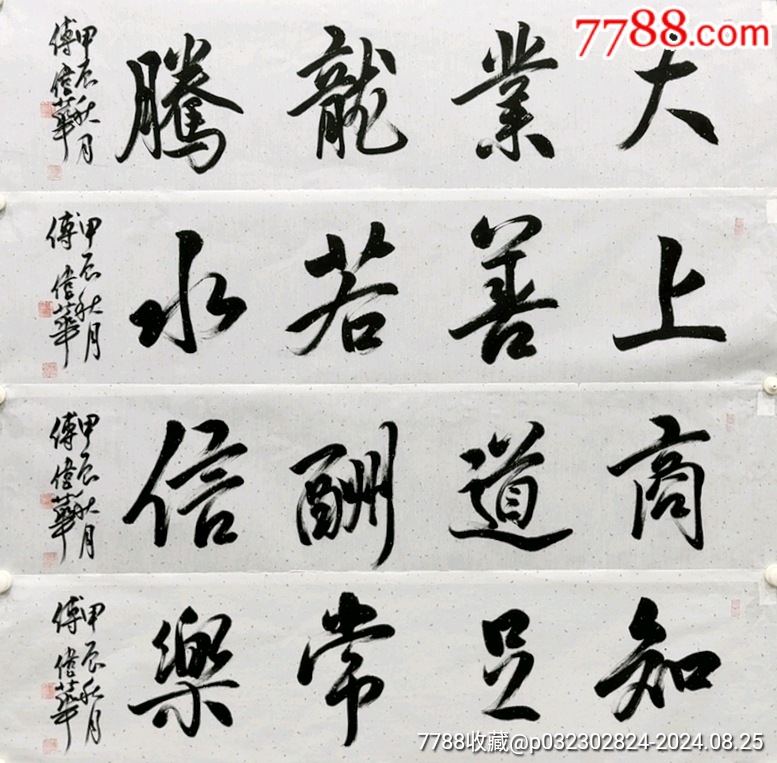 7788.com
大業龍騰
甲辰秋月
傅偉華
上善若水
甲辰秋月
傅偉華
商道酬信
甲辰秋月
傅偉華
知足常樂
甲辰秋月
傅偉華
7788收藏@p032302824-2024.08.25